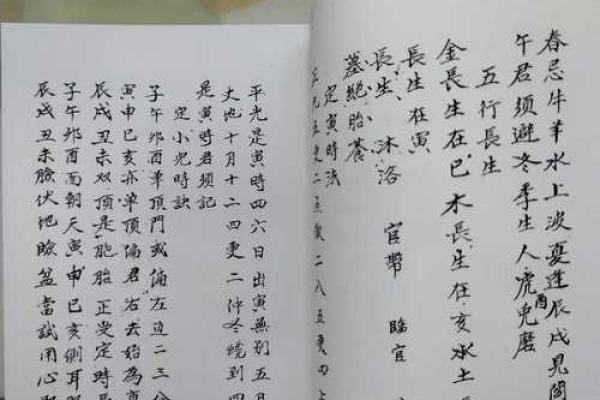 春忌牛羊水上波夏逢辰戌見閻
午君須避冬季生人虎酉兔磨
五行長生
金長生在巳 木長生在亥水土
長生在寅
長生 沐浴 官帶 臨官
墓絕胎養
定寅時法
正九五更二点徹二八五更四
平光是寅時四六日出寅無别五月
丈地十月十二四更二仲冬纔到四
是寅時君須記
定小兒時訣
子午卯酉单頂門或偏左邊二三分
寅申巳亥亦单頂偏君右去始為真
辰戌丑未双頂是胞胎正受定時
子午卯酉面朝天寅申巳亥側耳
辰戌丑未臉伏地臉盆當試用心